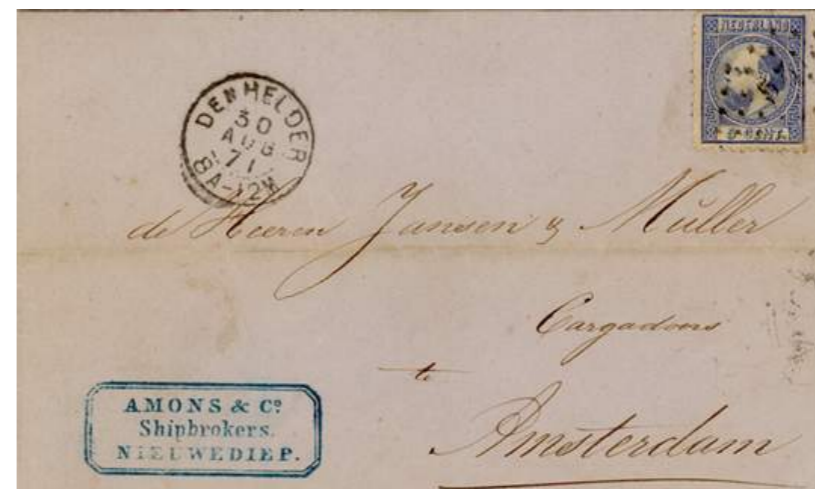 NEDERLAND
DEN HELDER
30
AUG
71
8A-12M
de Heeren Jansen & Müller
Cargadoors
te
Amsterdam
AMONS & Co
Shipbrokers.
NIEUWEDIEP.